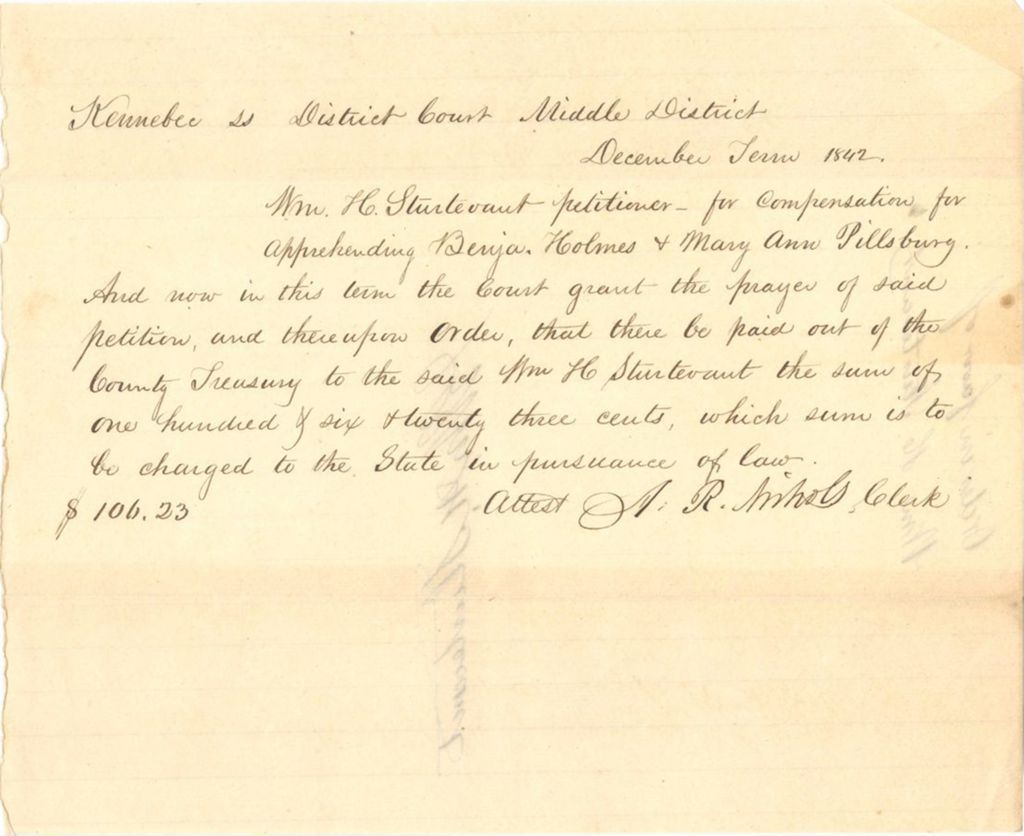 Kennebec ss District Court Middle District
December Term 1842.
Wm. H. Sturtevant petitioner - for Compensation for
apprehending Benja. Holmes & Mary Ann Pillsbury.
And now in this term the Court grant the prayer of said
petition, and thereupon Order, that there be paid out of the
County Treasury to the said Wm H Sturtevant the sum of
one hundred & six & twenty three cents, which sum is to
be charged to the State in pursuance of law.
$ 106.23 Attest R. Nichols, Clerk